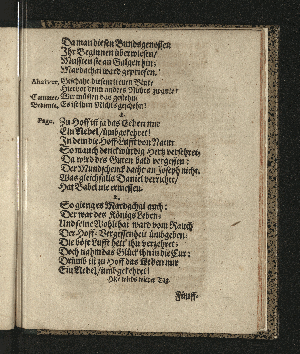 Da man diesen Bundsgenossen
Ihr Beginnen überwiesen/
Musten sie an Galgen hin;
Mardachai ward gepriesen.
Ahasver. Geschahe diesem treuen
Hiervor denn anders Nichts
Wir müssen das gestehn/
Es ist ihm Nichts geschehn?
2.
Page. Zu Hoff ist ja das Leben nur
Ein Nebel/ümbgekehret!
In dem die Hoff-Lufft von Natur
So manch danckwürdig Hertz versehret.
Da wird des Guten bald vergessen:
Der Mundschenck dacht an Joseph nicht.
Was gleichfalls Daniel verrichte/
Hat Babel nie ermessen.
3.
So gieng es Mardachai auch:
Der war des Königs Leben/
Und seine Wohlthat ward vom Rauch
Der Hoff-Vergessenheit ümbgeben:
Die böse Lufft hett' ihn verzehret;
Doch nahm das Glück ihn in die Cur:
Drümb ist zu Hoff das Leben nur
Ein Nebel/ümbgekehret!
Fünff-